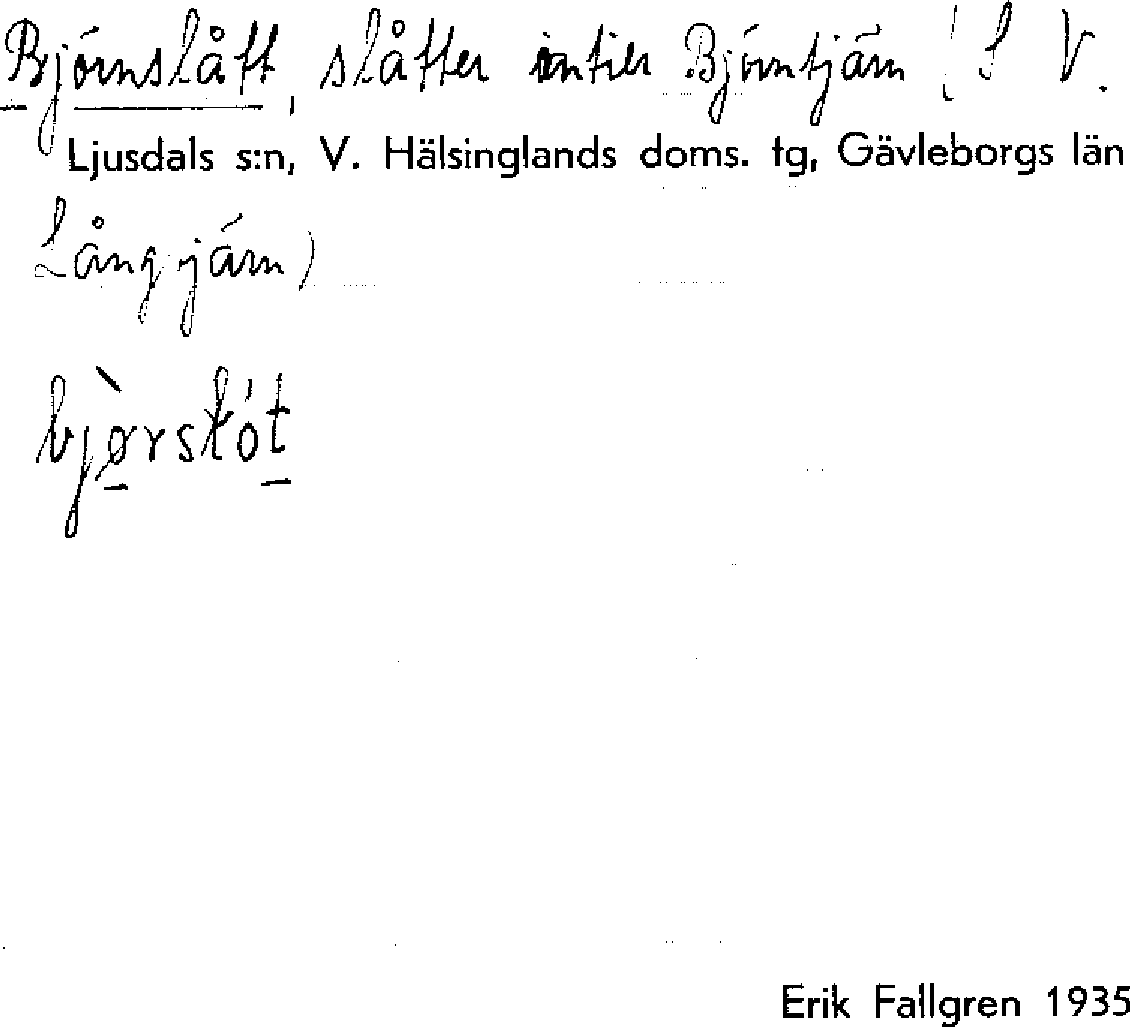 Björnslått, slåtter intill Björntjärn (S V.
Ljusdals s:n, V. Hälsinglands doms. tg, Gävleborgs län
Långtjärn)
Erik Fallgren 1935